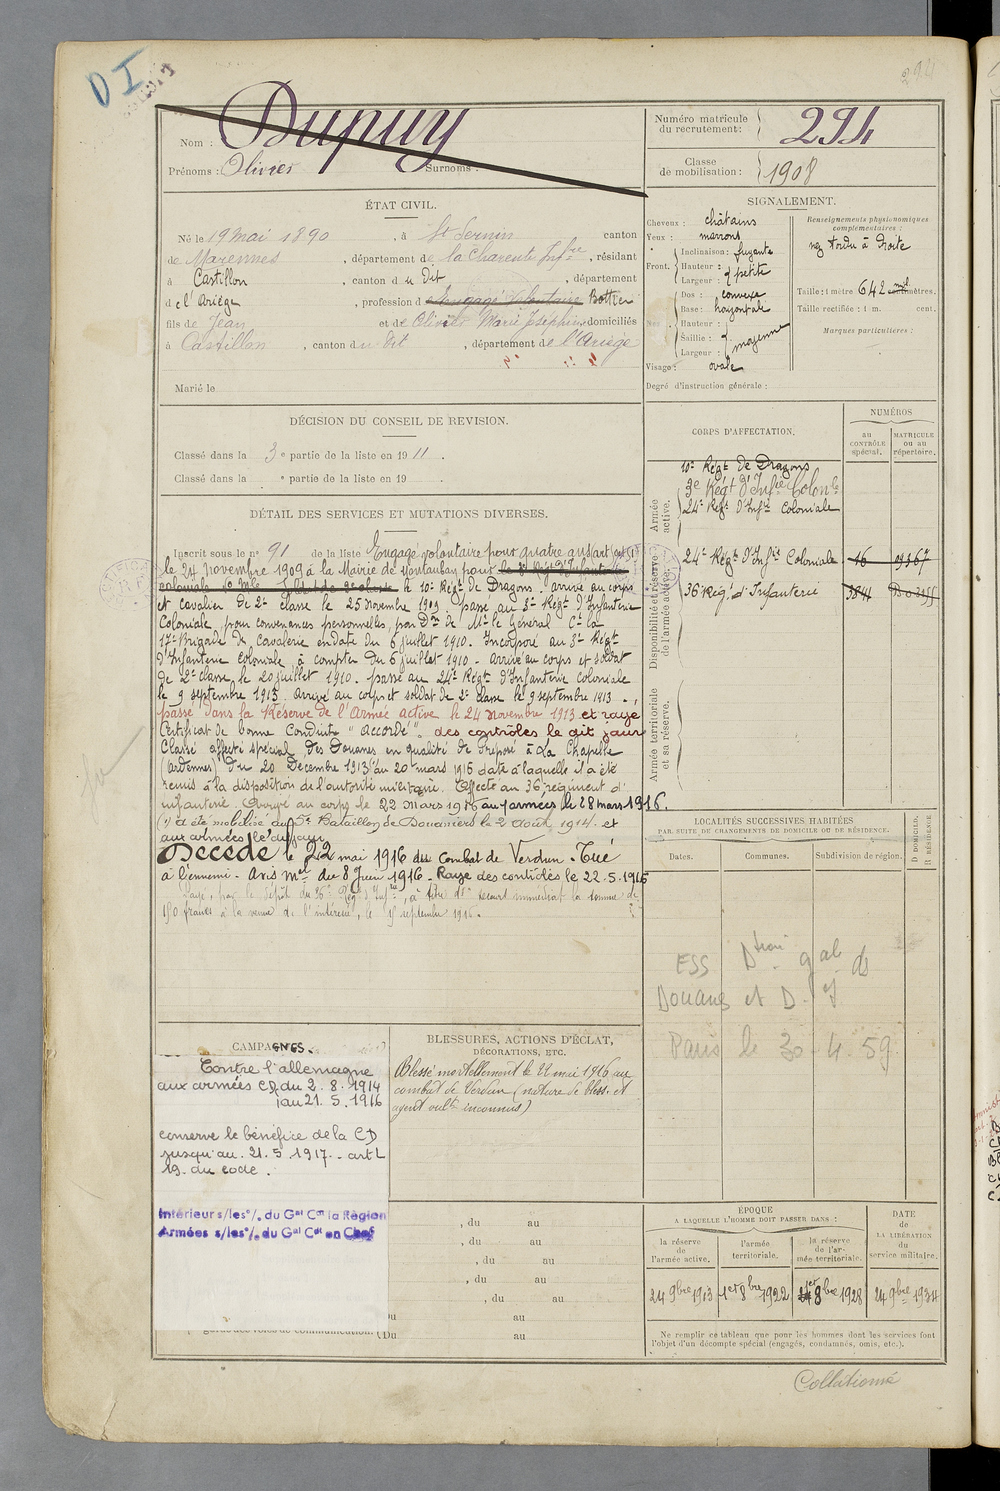 D I
294
Nom : Dupuy
Prénoms : Olivier Surnoms :
Numéro matricule du recrutement : 294
Classe de mobilisation : 1908
ÉTAT CIVIL.
Né le 19 Mai 1890, à St Sernin canton
de Marennes, département de la Charente Infre, résidant
à Castillon, canton du dit, département
de l'Ariège, profession d engagé volontaire Bottier
fils de Jean et de Olivier Marie Joséphine, domiciliés
à Castillon, canton du dit, département de l'Ariège
Marié le
SIGNALEMENT.
Cheveux : châtains
Yeux : marrons
Front. Inclinaison : fuyante
Hauteur :
Largeur : petite
Nez : Dos : convexe
Base : horizontale
Hauteur :
Saillie : moyenne
Largeur :
Visage : ovale
Degré d'instruction générale :
Renseignements physionomiques complémentaires :
nez tordu à droite
Taille : 1 mètre 642 mil mètres.
Taille rectifiée : 1 m. cent.
Marques particulières :
DÉCISION DU CONSEIL DE REVISION.
Classé dans la 3e partie de la liste en 1911.
Classé dans la e partie de la liste en 19 .
CORPS D'AFFECTATION.
NUMÉROS
au contrôle spécial.
MATRICULE ou au répertoire.
Armée active.
10e Régt de Dragons
3e Régt d'Infie Coloniale
24e Régt d'Infie Coloniale
Disponibilité et réserve de l'armée active.
24e Régt d'Infie Coloniale 16
36 Rég. d'Infanterie
Armée territoriale et sa réserve.
DÉTAIL DES SERVICES ET MUTATIONS DIVERSES.
Inscrit sous le n° 91 de la liste Engagé volontaire pour quatre ans
le 24 novembre 1909 à la Mairie de Montauban pour le 3e Régt d'Infanterie
coloniale le 10e Régt de Dragons. arrivé au corps
et cavalier de 2e classe le 25 novembre 1909. passé au 3e Régt d'Infanterie
Coloniale, pour convenances personnelles, par Don de Mr le Général Ct la
17e Brigade de cavalerie en date du 6 juillet 1910. Incorporé au 3e Régt
d'Infanterie coloniale à compter du 6 juillet 1910. arrivé au corps et soldat
de 2e classe le 20 juillet 1910. passé au 24e Régt d'Infanterie Coloniale
le 9 septembre 1913. Arrivé au corps et soldat de 2e classe le 9 septembre 1913.
passé dans la Réserve de l'Armée active le 24 novembre 1913 et rayé
Certificat de bonne Conduite "Accordé". des contrôles le dit jour
Classé affecté spécial des Douanes en qualité de préposé à La Chapelle
(Ardennes) du 20 Décembre 1913 au 20 mars 1916 date à laquelle il a été
remis à la disposition de l'autorité militaire. Affecté au 36e régiment d'
infanterie. Arrivé au corps le 22 Mars 1916 aux armées le 28 mars 1916.
(1) a été mobilisé au 5e Bataillon de Douaniers le 2 août 1914. et
aux armées le dit jour
Décédé le 22 mai 1916 au combat de Verdun. Tué
à l'ennemi - Avis mel du 8 Juin 1916 - Rayé des contrôles le 22.5.1916
Payé, par le dépôt du 36e Régt Infrie, à titre de secours immédiat la somme de
150 francs à la veuve de l'intéressé, le septembre 1916.
LOCALITÉS SUCCESSIVES HABITÉES
PAR SUITE DE CHANGEMENTS DE DOMICILE OU DE RÉSIDENCE.
Dates.
Communes.
Subdivision de région.
D DOMICILE.
R RÉSIDENCE
ESS Dtion gale ds
Douanes et D. I
Paris le 30.4.59
CAMPAGNES.
Contre l'allemagne
aux armées CD. du 2.8.1914
au 21.5.1916
conserve le bénéfice de la CD
jusqu'au 21.5.1917. - art L
19. du code.
Intérieur s/les o/. du Gal Ct la Région
Armées s/les o/. du Gal Ct en Chef
BLESSURES, ACTIONS D'ÉCLAT,
DÉCORATIONS, ETC.
Blessé mortellement le 22 mai 1916 au
combat de Verdun (nature de bless. et
agent vult inconnus)
, du au
, du au
, du au
, du au
, du au
Du au
(Du au
ÉPOQUE
A LAQUELLE L'HOMME DOIT PASSER DANS :
la réserve de l'armée active.
l'armée territoriale.
la réserve de l'armée territoriale.
DATE de LA LIBÉRATION du service militaire.
24 9bre 1913
1er 8bre 1922
1er 8bre 1928
24 9bre 1934
Ne remplir ce tableau que pour les hommes dont les services font
l'objet d'un décompte spécial (engagés, condamnés, omis, etc.).
Collationné